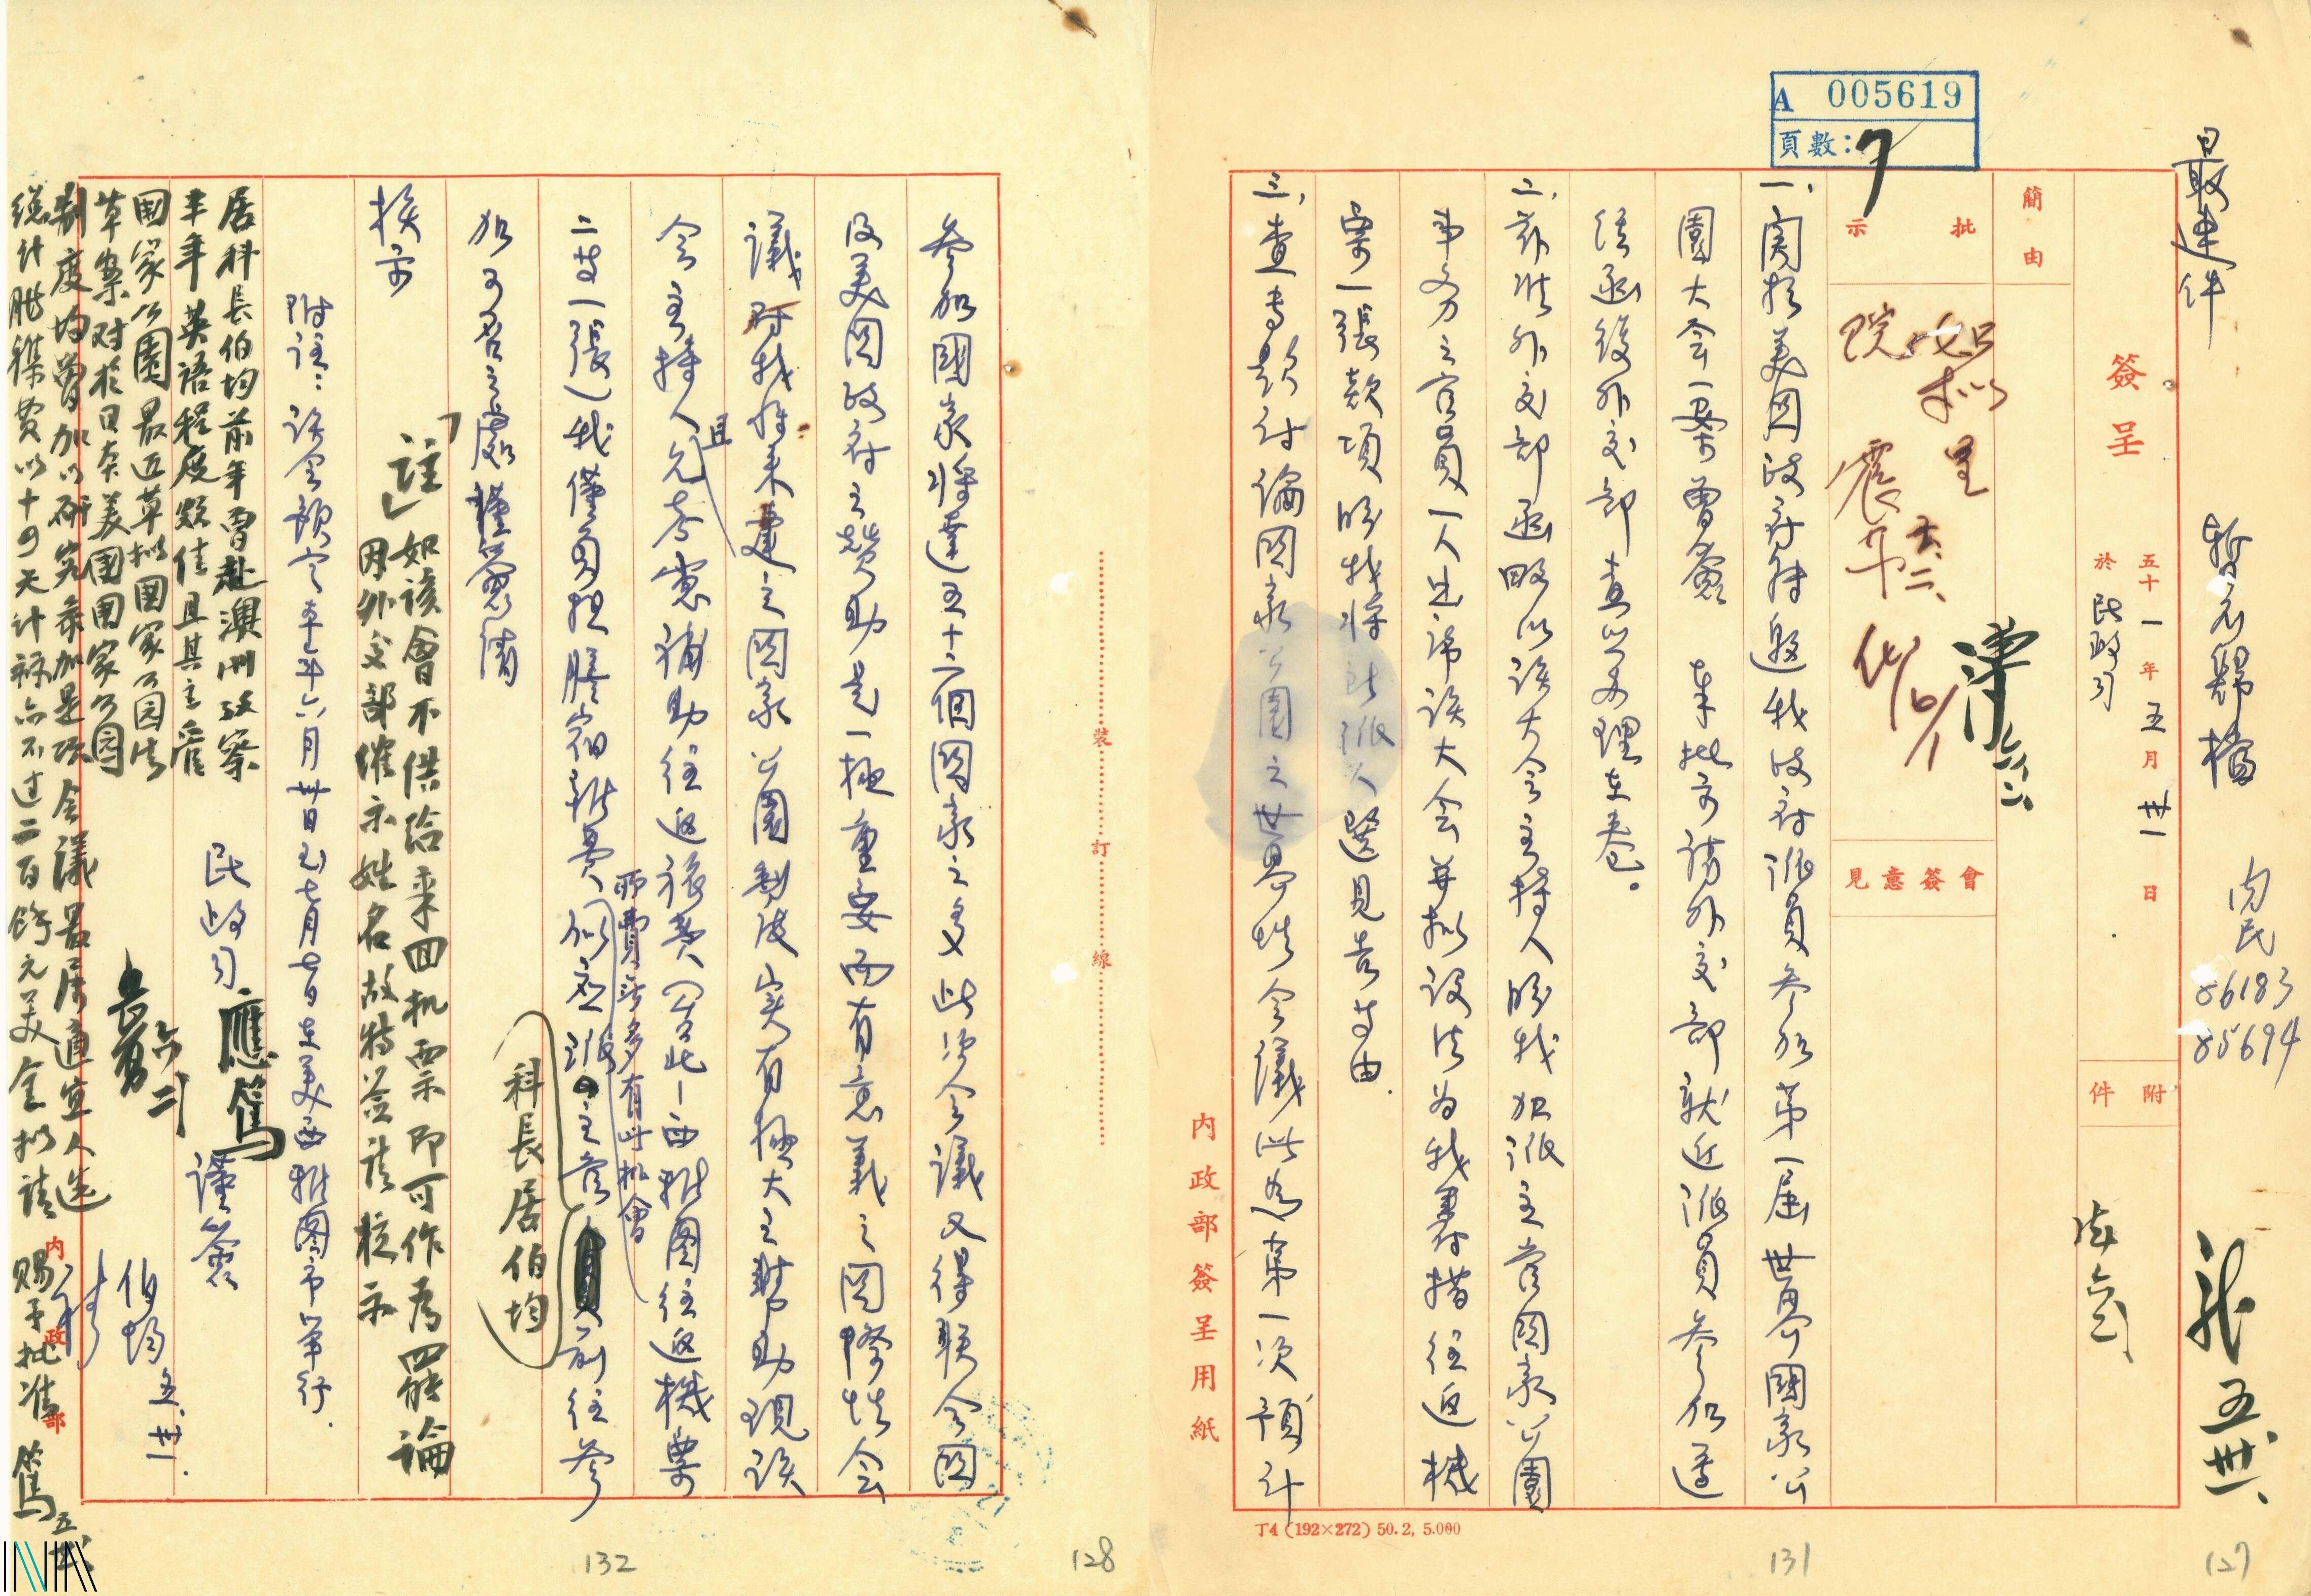 A 005619
頁數：7
最速件
內民
86183
85694
五卅、
簽呈
五十一年五月卅一日
於民政司
附件
簡由
批示
如擬
會簽意見
一、關於美國政府特邀我政府派員參加第一屆世界國家公
園大會一案曾簽 奉批可請外交部就近派員參加這
經函復外交部查照辦理在卷。
二、茲准外交部函略以該大會主持人盼我加派主管國家公園
事務之官員一人出席該大會並擬設法為我籌措往返機
票一張款項盼我將 派人選見告等由.
三、查專題討論國家公園之世界性會議此為第一次預計
內政部簽呈用紙
丁4（192×272）50.2, 5.000
131
127
參加國家將達五十二個國家之多此次會議又得聯合國
及美國政府之贊助是一極重要而有意義之國際性會
議對我將來建立國家公園制度實有極大之幫助現該
會主持人且允考慮補助往返旅費（台北—西雅圖往返機票
二封一張）我僅負担膳宿雜費所費無多有此機會似應派主管科長居伯均前往參
加可否之處謹簽請
核示
「註」如該會不供給來回机票即可作為罷論
因外交部催示姓名故特簽請核示
附註：該會預定本年六月卅日至七月七日在美西雅圖市舉行.
民政司 應篤 謹簽
長勇 六二
伯均 五.卅一.
居科長伯均前年曾赴澳洲攷察
半年英語程度頗佳且其主管
國家公園最近草拟國家公园法
草案对於日本美國國家公园
制度均曾加以研究參加是項會議最屬適宜人选
總計膳雜費以十四天計祘亦不过二百餘元美金拟請 賜予批准 篤
內政部
裝 訂 線
132
128